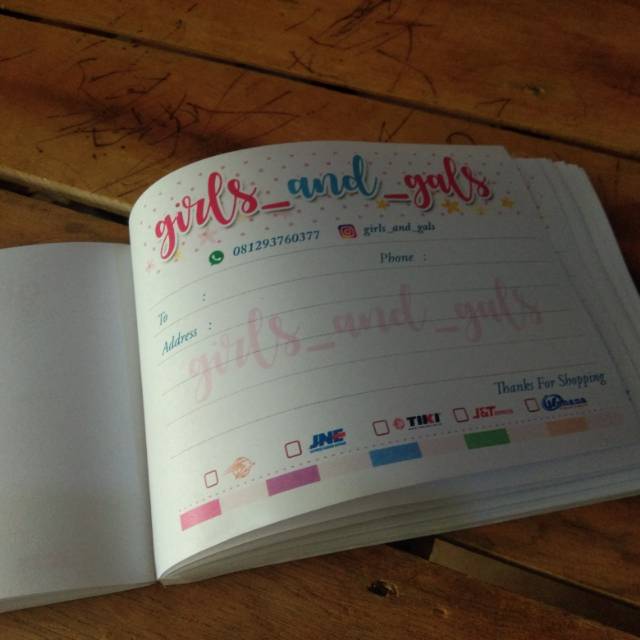 girls_and_gals
081293760377 girls_and_gals
To : Phone :
Address :
girls_and_gals
Thanks For Shopping
JNE TIKI J&T